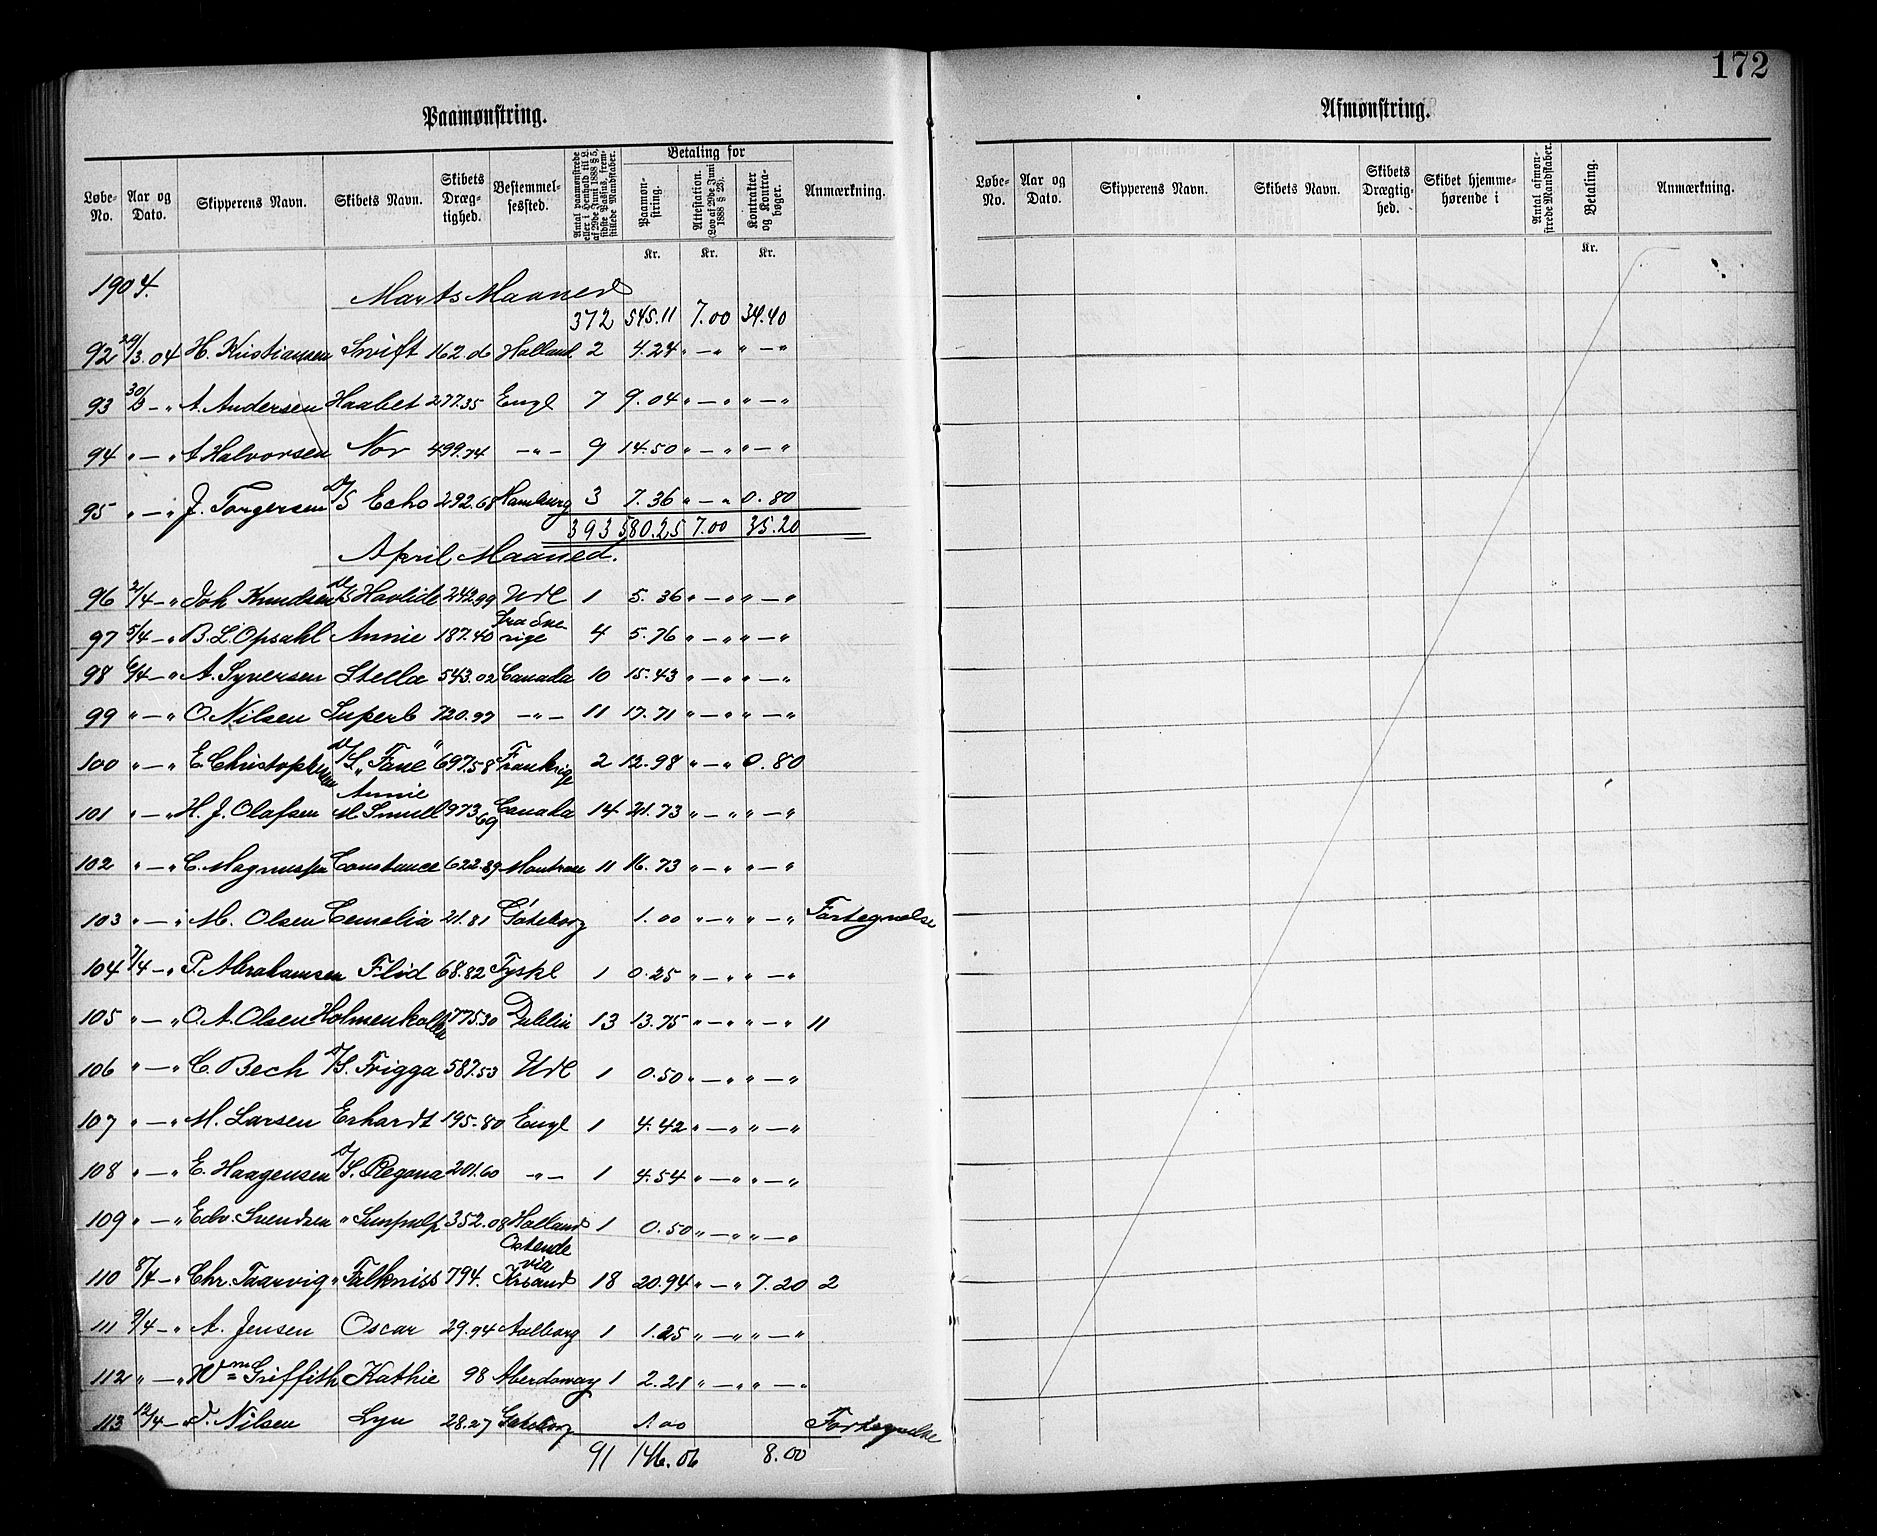 Paamønstring.
Løbe-No. Aar og Dato. Skipperens Navn. Skibets Navn. Skibets Dræg-tighed. Bestemmel-sessted. Antal paamønstrede eller i Henhold til L. af 29de Juni 1888 § 5, sidste Passus, frem-stillede Mandskaber. Betaling for Paamøn-string. Attestation. (Lov af 29de Juni 1888 § 23). Kontrakter og Kontra-bøger. Anmærkning.
Kr. Kr. Kr.
1904. Marts Maaned
372 545.11 7.00 34.40
92 29/3.04 H. Kristiansen Swift 162.06 Holland 2 4.24 " — " " — "
93 30/3 — " A. Andersen Haabet 277.35 Engl 7 9.04 " — " " — "
94 " — " A Halvorsen Nor 499.74 — " — 9 14.50 " — " " — "
95 " — " J. Torgersen D/S Echo 292.68 Hamburg 3 7.36 " — " 0.80
393 580.25 7.00 35.20
April Maaned.
96 2/4 — " Joh Knudsen D/S Havlide 242.99 Udl 1 5.36 " — " " — "
97 5/4 — " B. L. Opsahl Annie 187.40 fra Sve-rige 4 5.76 " — " " — "
98 6/4 — " A. Syversen Stella 543.02 Canada 10 15.43 " — " " — "
99 " — " O. Nilsen Superb 720.97 — " — 11 17.71 " — " " — "
100 " — " E. Christophersen D/S "Fane" 697.58 Frankrige 2 12.98 " — " 0.80
101 " — " H. J. Olafsen Annie M. Smull 973.69 Canada 14 21.73 " — " " — "
102 " — " C. Magnussen Constance 622.89 Montrose 11 16.73 " — " " — "
103 " — " M. Olsen Cemelia 21.81 Göteborg 1.00 " — " " — " Fortegnelse
104 7/4 — " P. Abrahamsen Flid 68.82 Tyskl 1 0.25 " — " " — "
105 " — " O. A. Olsen Holmenkollen 775.30 Dublin 13 13.75 " — " " — " 11
106 " — " C. Bech D/S. Frigga 587.53 Udl 1 0.50 " — " " — "
107 " — " M. Larsen Erhardt 195.80 Engl 1 4.42 " — " " — "
108 " — " E. Haagensen D/S. Regona 201.60 — " — 1 4.54 " — " " — "
109 " — " Edv. Svendsen " 352.08 Holland 1 0.50 " — " " — "
110 8/4 — " Chr. Taarvig " Falkniss 794. Ostende via Krsand 18 20.94 " — " 7.20 2
111 9/4 — " A. Jensen Oscar 29.94 Aalborg 1 1.25 " — " " — "
112 " — " Wm Griffith Kathie 98 Aberdovay 1 2.21 " — " " — "
113 12/4 — " T. Nilsen Lyn 28.27 Göteborg 1.00 Fortegnelse
91 146.06 8.00
172
Afmønstring.
Løbe-No. Aar og Dato. Skipperens Navn. Skibets Navn. Skibets Drægtig-hed. Skibet hjemme-hørende i Antal afmøn-strede Mandskaber. Betaling. Anmærkning.
Kr.